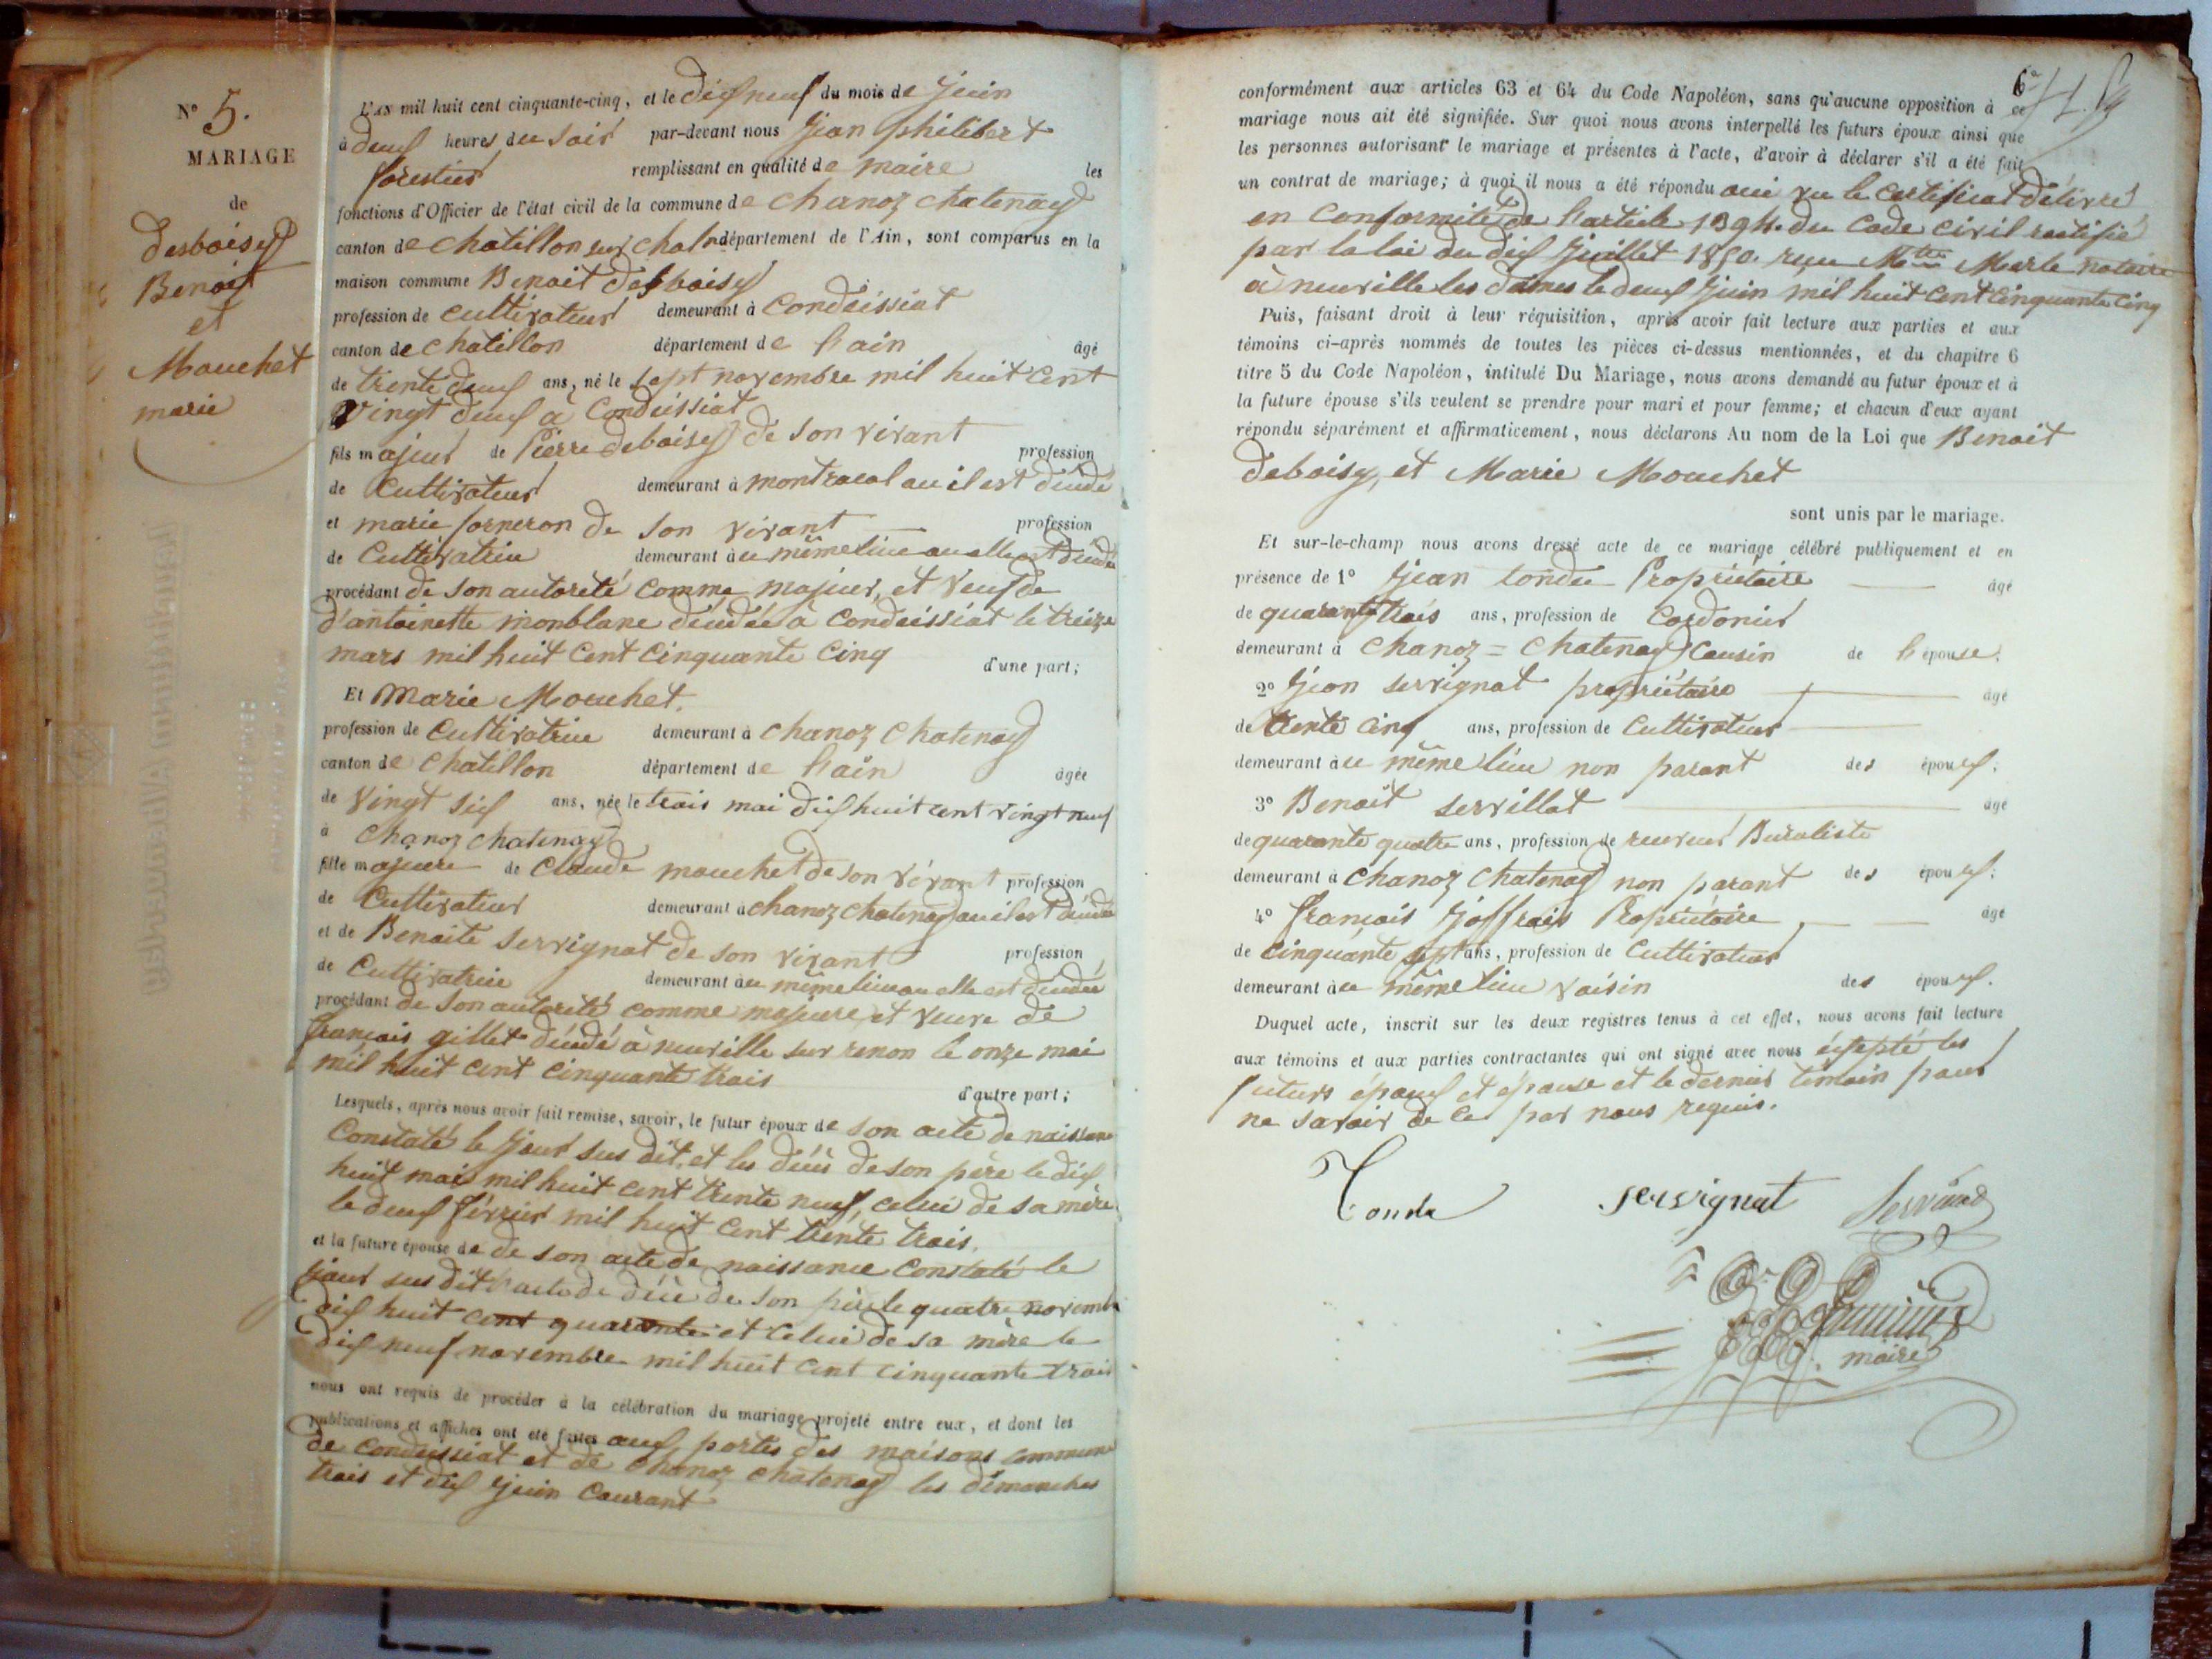 N° 5.
MARIAGE
de
desboisy
Benoit
et
Mouchet
marie
L'AN mil huit cent cinquante-cinq, et le dixneuf du mois de Juin
à deux heures du soir par-devant nous Jean philibert
forestier remplissant en qualité de maire les
fonctions d'Officier de l'état civil de la commune de chanoz chatenay
canton de chatillon sur chaln département de l'Ain, sont comparus en la
maison commune Benoit desboisy
profession de cultivateur demeurant à condeissiat
canton de chatillon département de l'ain âgé
de trente deux ans, né le sept novembre mil huit cent
vingt deux à condeissiat
fils majeur de Pierre deboisy de son vivant profession
de cultivateur demeurant à montracol ou il est décédé
et marie forneron de son vivant profession
de cultivatrice demeurant au même lieu ou elle est décédé
procédant de son autorité comme majeur, et veuf de
d'antoinette monblanc décédée à condeissiat le treize
mars mil huit cent cinquante cinq d'une part;
Et Marie Mouchet.
profession de cultivatrice demeurant à chanoz chatenay
canton de chatillon département de l'ain âgée
de vingt six ans, née le trois mai dix huit cent vingt neuf
à chanoz chatenay
fille majeure de claude mouchet de son vivant profession
de cultivateur demeurant à chanoz chatenay ou il est décédé
et de Benoite servignat de son vivant profession
de cultivatrice demeurant au même lieu ou elle est décédée
procédant de son autorité comme majeure et veuve de
françois gillet décédé à neuville sur renon le onze mai
mil huit cent cinquante trois d'autre part;
Lesquels, après nous avoir fait remise, savoir, le futur époux de son acte de naissance
constaté le jour sus dit, et les décés de son père le dix
huit mars mil huit cent trente neuf, celui de sa mère
le deux février mil huit cent trente trois.
et la future épouse de de son acte de naissance constaté le
jour sus dit l'acte de décé de son père le quatre novembre
dix huit cent quarante et celui de sa mère le
dix neuf novembre mil huit cent cinquante trois
nous ont requis de procéder à la célébration du mariage projeté entre eux, et dont les
publications et affiches ont été faites aux portes des maisons commune
de condeissiat et de chanoz chatenay les dimanches
trois et dix Juin courant
conformément aux articles 63 et 64 du Code Napoléon, sans qu'aucune opposition à ce
mariage nous ait été signifiée. Sur quoi nous avons interpellé les futurs époux ainsi que
les personnes autorisant le mariage et présentes à l'acte, d'avoir à déclarer s'il a été fait
un contrat de mariage; à quoi il nous a été répondu oui vu le certificat délivré
en conformité de l'article 1394 du code civil rectifié
par la loi du dix Juillet 1850. reçu Mtre Marle notaire
à neuville les dames le deux Juin mil huit cent cinquante cinq
Puis, faisant droit à leur réquisition, après avoir fait lecture aux parties et aux
témoins ci-après nommés de toutes les pièces ci-dessus mentionnées, et du chapitre 6
titre 5 du Code Napoléon, intitulé Du Mariage, nous avons demandé au futur époux et à
la future épouse s'ils veulent se prendre pour mari et pour femme; et chacun d'eux ayant
répondu séparément et affirmativement, nous déclarons Au nom de la Loi que Benoit
deboisy, et Marie Mouchet
sont unis par le mariage.
Et sur-le-champ nous avons dressé acte de ce mariage célébré publiquement et en
présence de 1° Jean tondu Propriétaire âgé
de quarante trois ans, profession de Cordonier
demeurant à chanoz = chatenay cousin de l'épouse.
2° Jean servignat propriétaire âgé
de trente cinq ans, profession de cultivateur
demeurant au même lieu non parant des époux.
3° Benoit servillat âgé
de quarante quatre ans, profession de receveur Buraliste
demeurant à chanoz chatenay non parant des époux.
4° françois Joffrais Propriétaire, âgé
de cinquante sept ans, profession de cultivateur
demeurant au même lieu voisin des époux.
Duquel acte, inscrit sur les deux registres tenus à cet effet, nous avons fait lecture
aux témoins et aux parties contractantes qui ont signé avec nous éxepté les
futurs époux et épouse et le dernier témoin pour
ne savoir de ce par nous requis.
Tondu servignat
maire